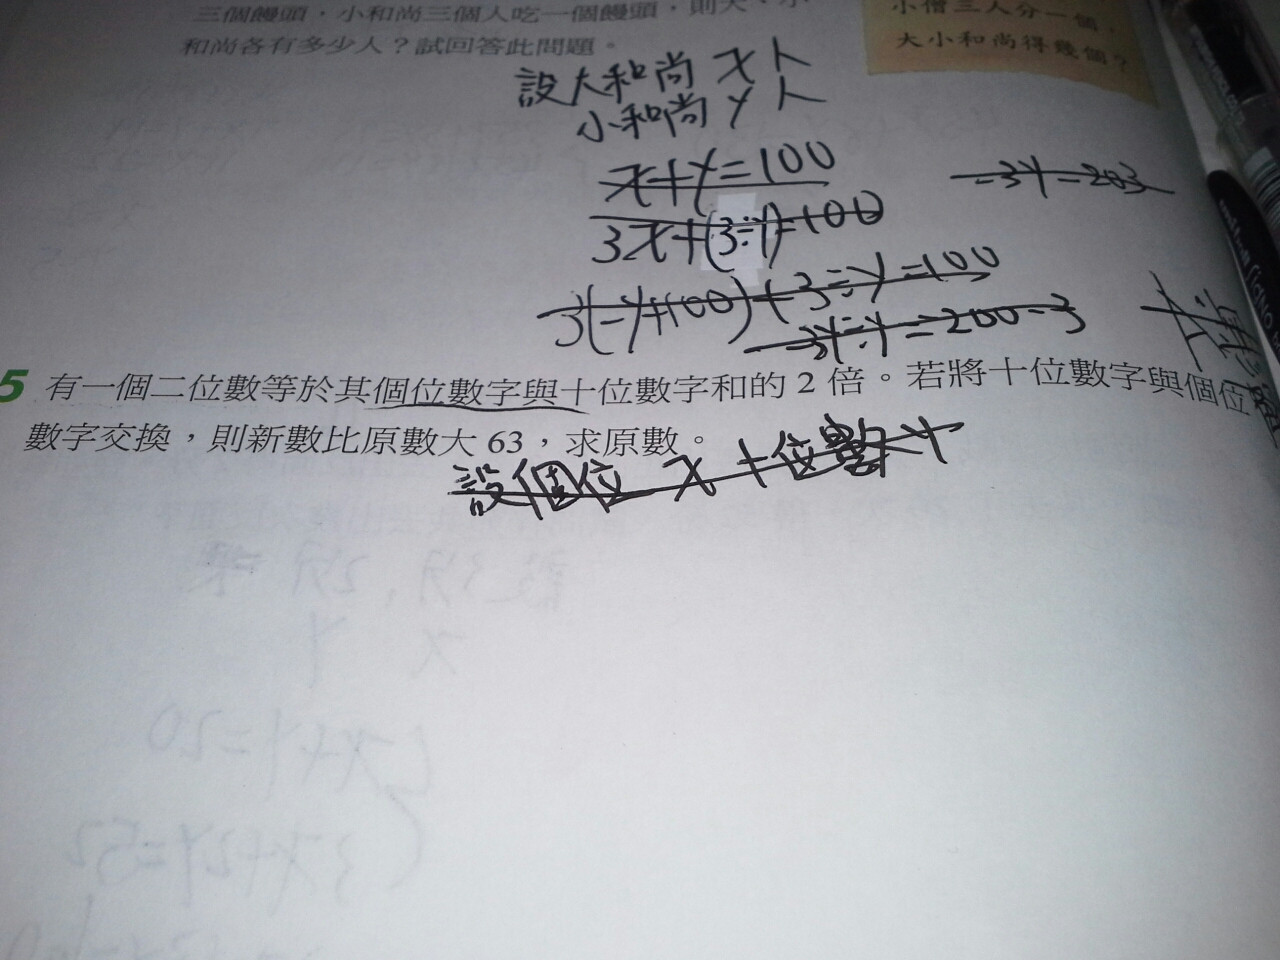 三個饅頭，小和尚三個人吃一個饅頭，則大、小
和尚各有多少人？試回答此問題。
小僧三人分一個，
大小和尚得幾個？
設大和尚 x 人
小和尚 y 人
x+y=100
3x+(3÷y)=100
3(-y+100)+3÷y=100
-3y÷y=200-3
-3y=203
5 有一個二位數等於其個位數字與十位數字和的 2 倍。若將十位數字與個位
數字交換，則新數比原數大 63，求原數。
設個位 x 十位數 y
x+y=20
3x+2y=52